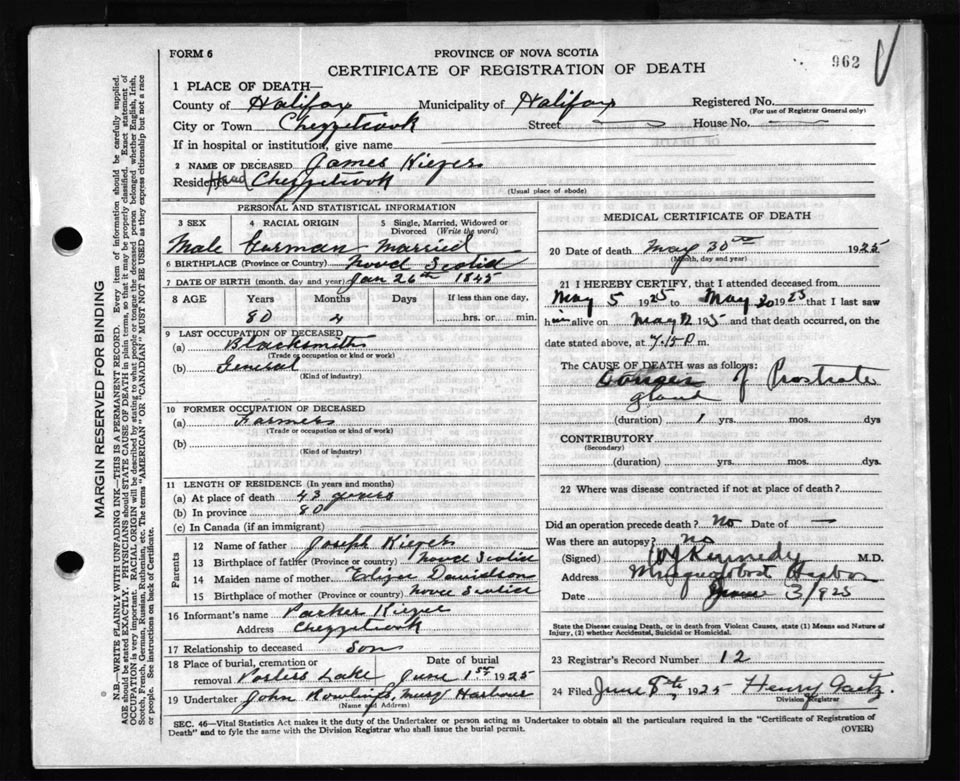 FORM 6
PROVINCE OF NOVA SCOTIA
CERTIFICATE OF REGISTRATION OF DEATH
962
1 PLACE OF DEATH—
County of Halifax Municipality of Halifax Registered No.
(For use of Registrar General only)
City or Town Chezzetcook Street — House No. —
If in hospital or institution, give name
2 NAME OF DECEASED James
Residence Head Chezzetcook
(Usual place of abode)
PERSONAL AND STATISTICAL INFORMATION
3 SEX 4 RACIAL ORIGIN 5 Single, Married, Widowed or Divorced (Write the word)
Male German Married
6 BIRTHPLACE (Province or Country) Nova Scotia
7 DATE OF BIRTH (month, day and year) Jan 26th 1845
8 AGE Years Months Days If less than one day,
80 4 hrs. or min.
9 LAST OCCUPATION OF DECEASED
(a) Blacksmith
(Trade or occupation or kind of work)
(b) General
(Kind of industry)
10 FORMER OCCUPATION OF DECEASED
(a) Farmer
(Trade or occupation or kind of work)
(b)
(Kind of industry)
11 LENGTH OF RESIDENCE (In years and months)
(a) At place of death 43 years
(b) In province 80
(c) In Canada (if an immigrant)
Parents
12 Name of father Joseph
13 Birthplace of father (Province or Country) Nova Scotia
14 Maiden name of mother Eliza Davidson
15 Birthplace of mother (Province or country) Nova Scotia
16 Informant's name Parker
Address Chezzetcook
17 Relationship to deceased Son
18 Place of burial, cremation or removal Porters Lake Date of burial June 1st 1925
19 Undertaker John Rowlings, Musq Harbour
(Name and Address)
MEDICAL CERTIFICATE OF DEATH
20 Date of death May 30th 1925
(Month, day and year)
21 I HEREBY CERTIFY, that I attended deceased from
May 5 1925 to May 30 1925 that I last saw
him alive on May 1925 and that death occurred, on
the date stated above, at 7.15 P. m.
The CAUSE OF DEATH was as follows:
Cancer of Prostrate
gland
(duration) 1 yrs. mos. dys
CONTRIBUTORY
(Secondary)
(duration) yrs. mos. dys.
22 Where was disease contracted if not at place of death?
Did an operation precede death? No Date of —
Was there an autopsy? No
(Signed) Kennedy M.D.
Address Musquodoboit Harbor
Date June 3/925
State the Disease causing Death, or in death from Violent Causes, state (1) Means and Nature of
Injury, (2) whether Accidental, Suicidal or Homicidal.
23 Registrar's Record Number 12
24 Filed June 8th 1925 Henry Gaetz.
Division Registrar
SEC. 46—Vital Statistics Act makes it the duty of the Undertaker or person acting as Undertaker to obtain all the particulars required in the "Certificate of Registration of
Death" and to fyle the same with the Division Registrar who shall issue the burial permit.
(OVER)
MARGIN RESERVED FOR BINDING
N.B.—WRITE PLAINLY WITH UNFADING INK—THIS IS A PERMANENT RECORD. Every item of information should be carefully supplied.
AGE should be stated EXACTLY. PHYSICIANS should STATE CAUSE OF DEATH in plain terms, so that it may be properly classified. Exact statement of
OCCUPATION is very important. RACIAL ORIGIN will be described by stating to what people or tongue the deceased person belonged whether English, Irish,
Scotch, French, German, Russian, Ruthenian, etc. The terms "AMERICAN" or "CANADIAN" MUST NOT BE USED as they express citizenship but not a race
or people. See instructions on back of Certificate.